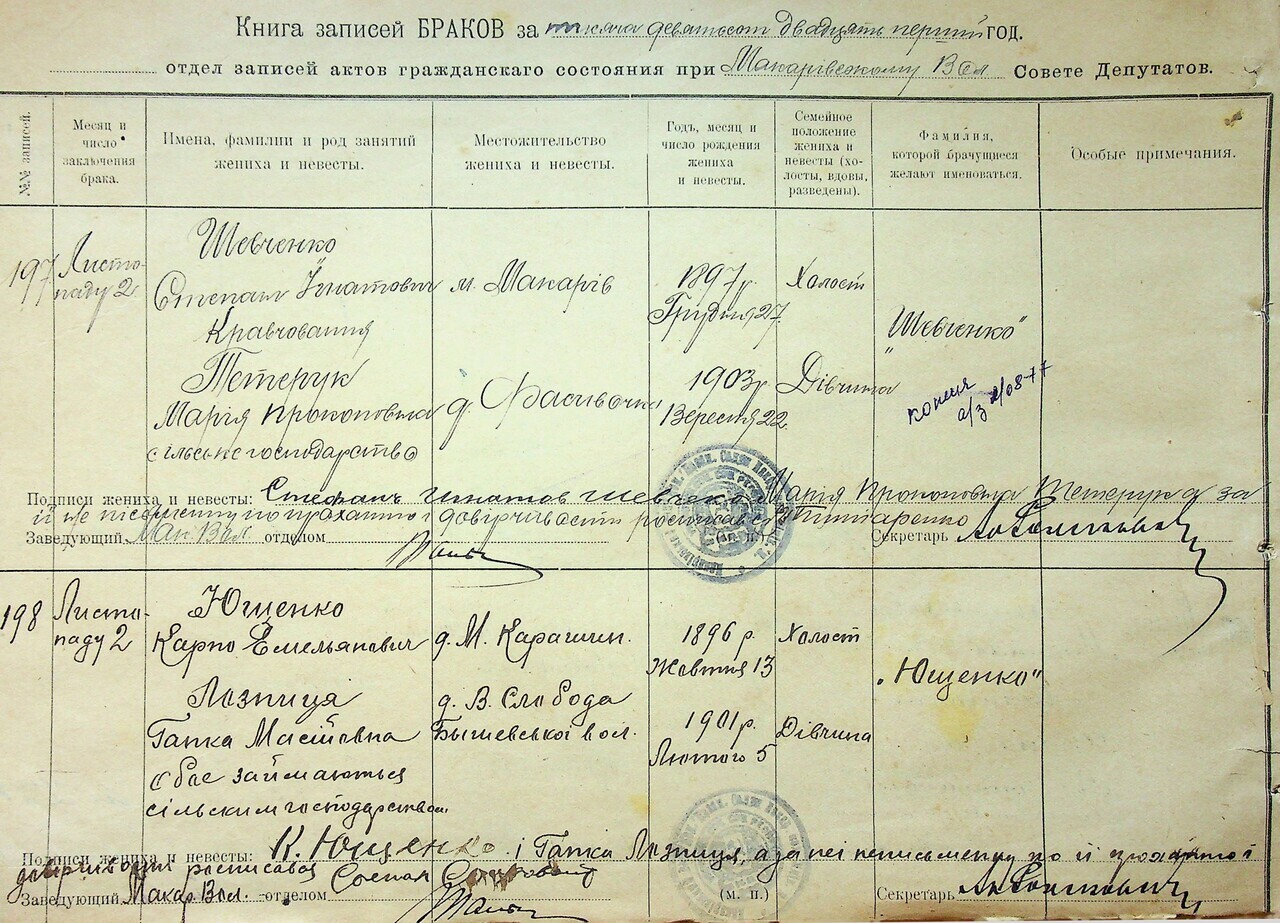 Книга записей БРАКОВ за тисяча девятьсот двадцять перший год.
отдел записей актов гражданскаго состояния при Макарівському Вол. Совете Депутатов.
№№ записей.
Месяц и число заключения брака.
Имена, фамилии и род занятий жениха и невесты.
Местожительство жениха и невесты.
Годъ, месяц и число рождения жениха и невесты.
Семейное положение жениха и невесты (холосты, вдовы, разведены).
Фамилия, которой брачущиеся желают именоваться.
Особые примечания.
197 Листопаду 2
Шевченко
Степан Игнатович м. Макарів 1897 р. Грудня 27 Холост
Кравчования
"Шевченко"
Тетерук
Марія Прокоповна д. Фасивочка 1903 р. Вересня 22 Дівчина
сільське господарство
копия
а/з
Подписи жениха и невесты: Стефанъ Игнатов Шевченко Марія Прокоповна Тетерук а за
її не письменну по проханню і довірчивости росписавсь
Заведующий Мак. Вол. отделом (м. п.) Секретарь
198 Листопаду 2
Ющенко
Карпо Емельянович д. М. Карашин. 1896 р. Жовтня 13 Холост
"Ющенко"
Лозниця д. В. Слобода
Гапка Маствовна Бышевської вол. 1901 р. Лютого 5 Дівчина
обоє займаються
сільским господарством
Подписи жениха и невесты: К. Ющенко і Гапка Лозниця, а за неї неписьменну по її проханню і
росписавсь
Заведующий Макар Вол. отделом (м. п.) Секретарь